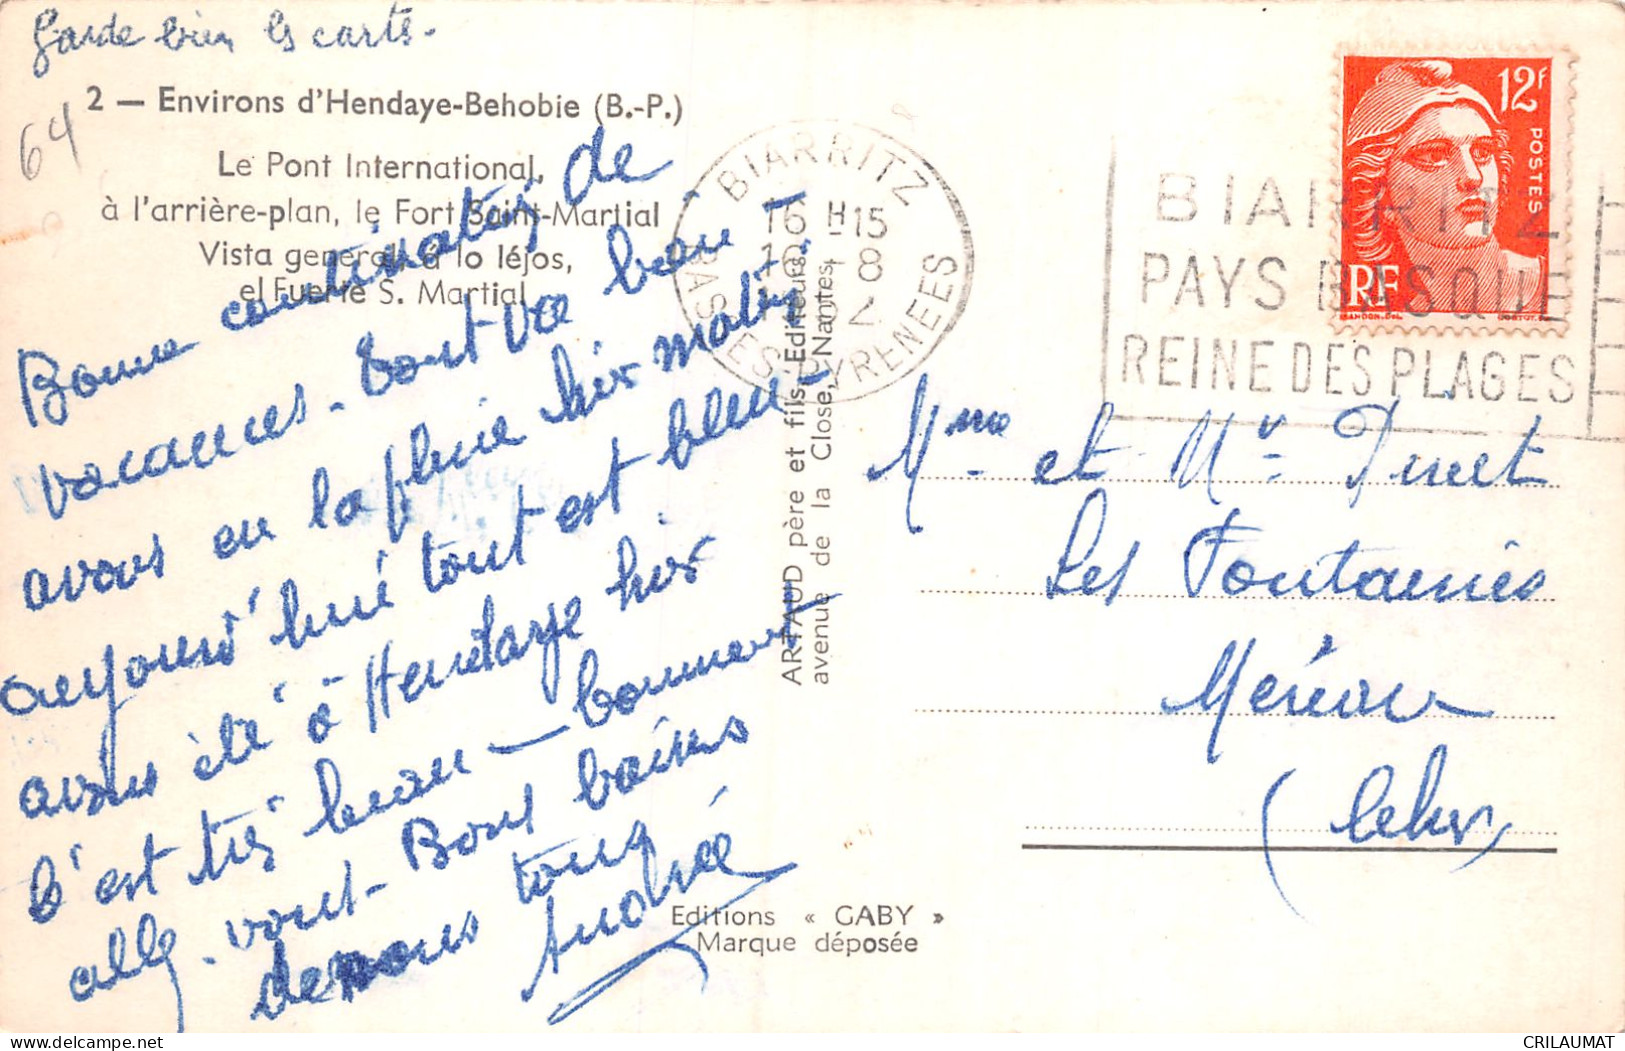 Garde bien les carts.
64
2 — Environs d'Hendaye-Behobie (B.-P.)
Le Pont International,
à l'arrière-plan, le Fort Saint-Martial
Vista general a lo léjos,
el Fuerte S. Martial
Bonne continuation de
vacances. tout va bien -
avons eu la pluie hier matin -
aujourd'hui tout est bleu -
avons été à Hendaye hier
c'est très beau - comment
allez-vous - Bons baisers
de nous tous
Andrée
ARTAUD père et fils, Editeurs
avenue de la Close, Nantes
Editions « GABY »
Marque déposée
BIARRITZ
16 H 15
-8
BASSES-PYRENEES
BIARRITZ
PAYS BASQUE
REINE DES PLAGES
12F
POSTES
RF
GANDON.DEL.
Mme et Mr
Les Fontaines
(Cher)
CRILAUMAT